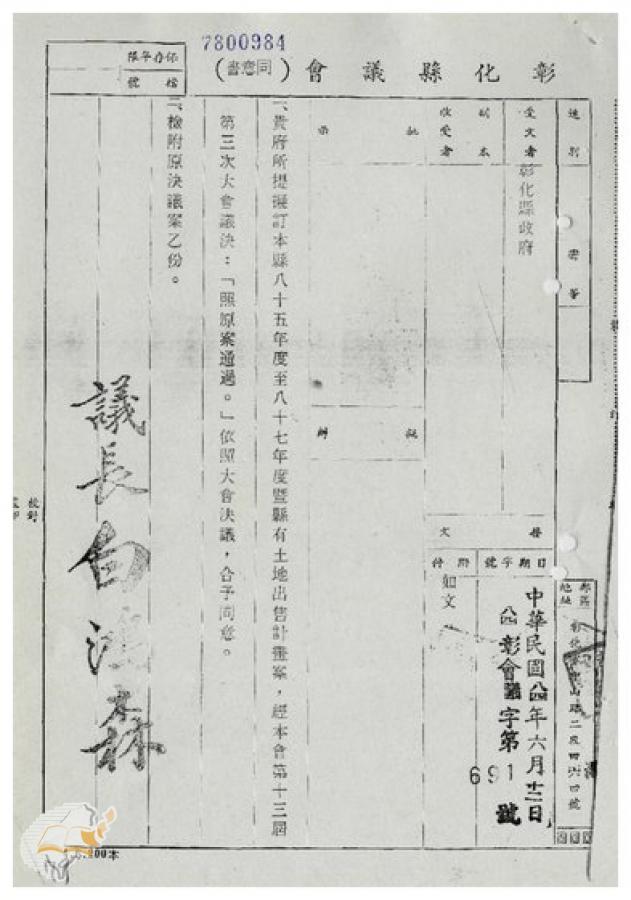 7800984
彰化縣議會(同意書)
保存年限
檔號
速別
受文者
彰化縣政府
副本
收受者
批示
擬辦
發文
日期
字號
附件
中華民國八四年六月十二日
彰會
字第
691
號
如文
一、貴府所提擬訂本縣八十五年度至八十七年度暨縣有土地出售計畫案,經本會第十三屆
第三次大會議決:「照原案通過。」依照大會決議,合予同意。
二、檢附原決議案乙份。
議長白鴻森
校對